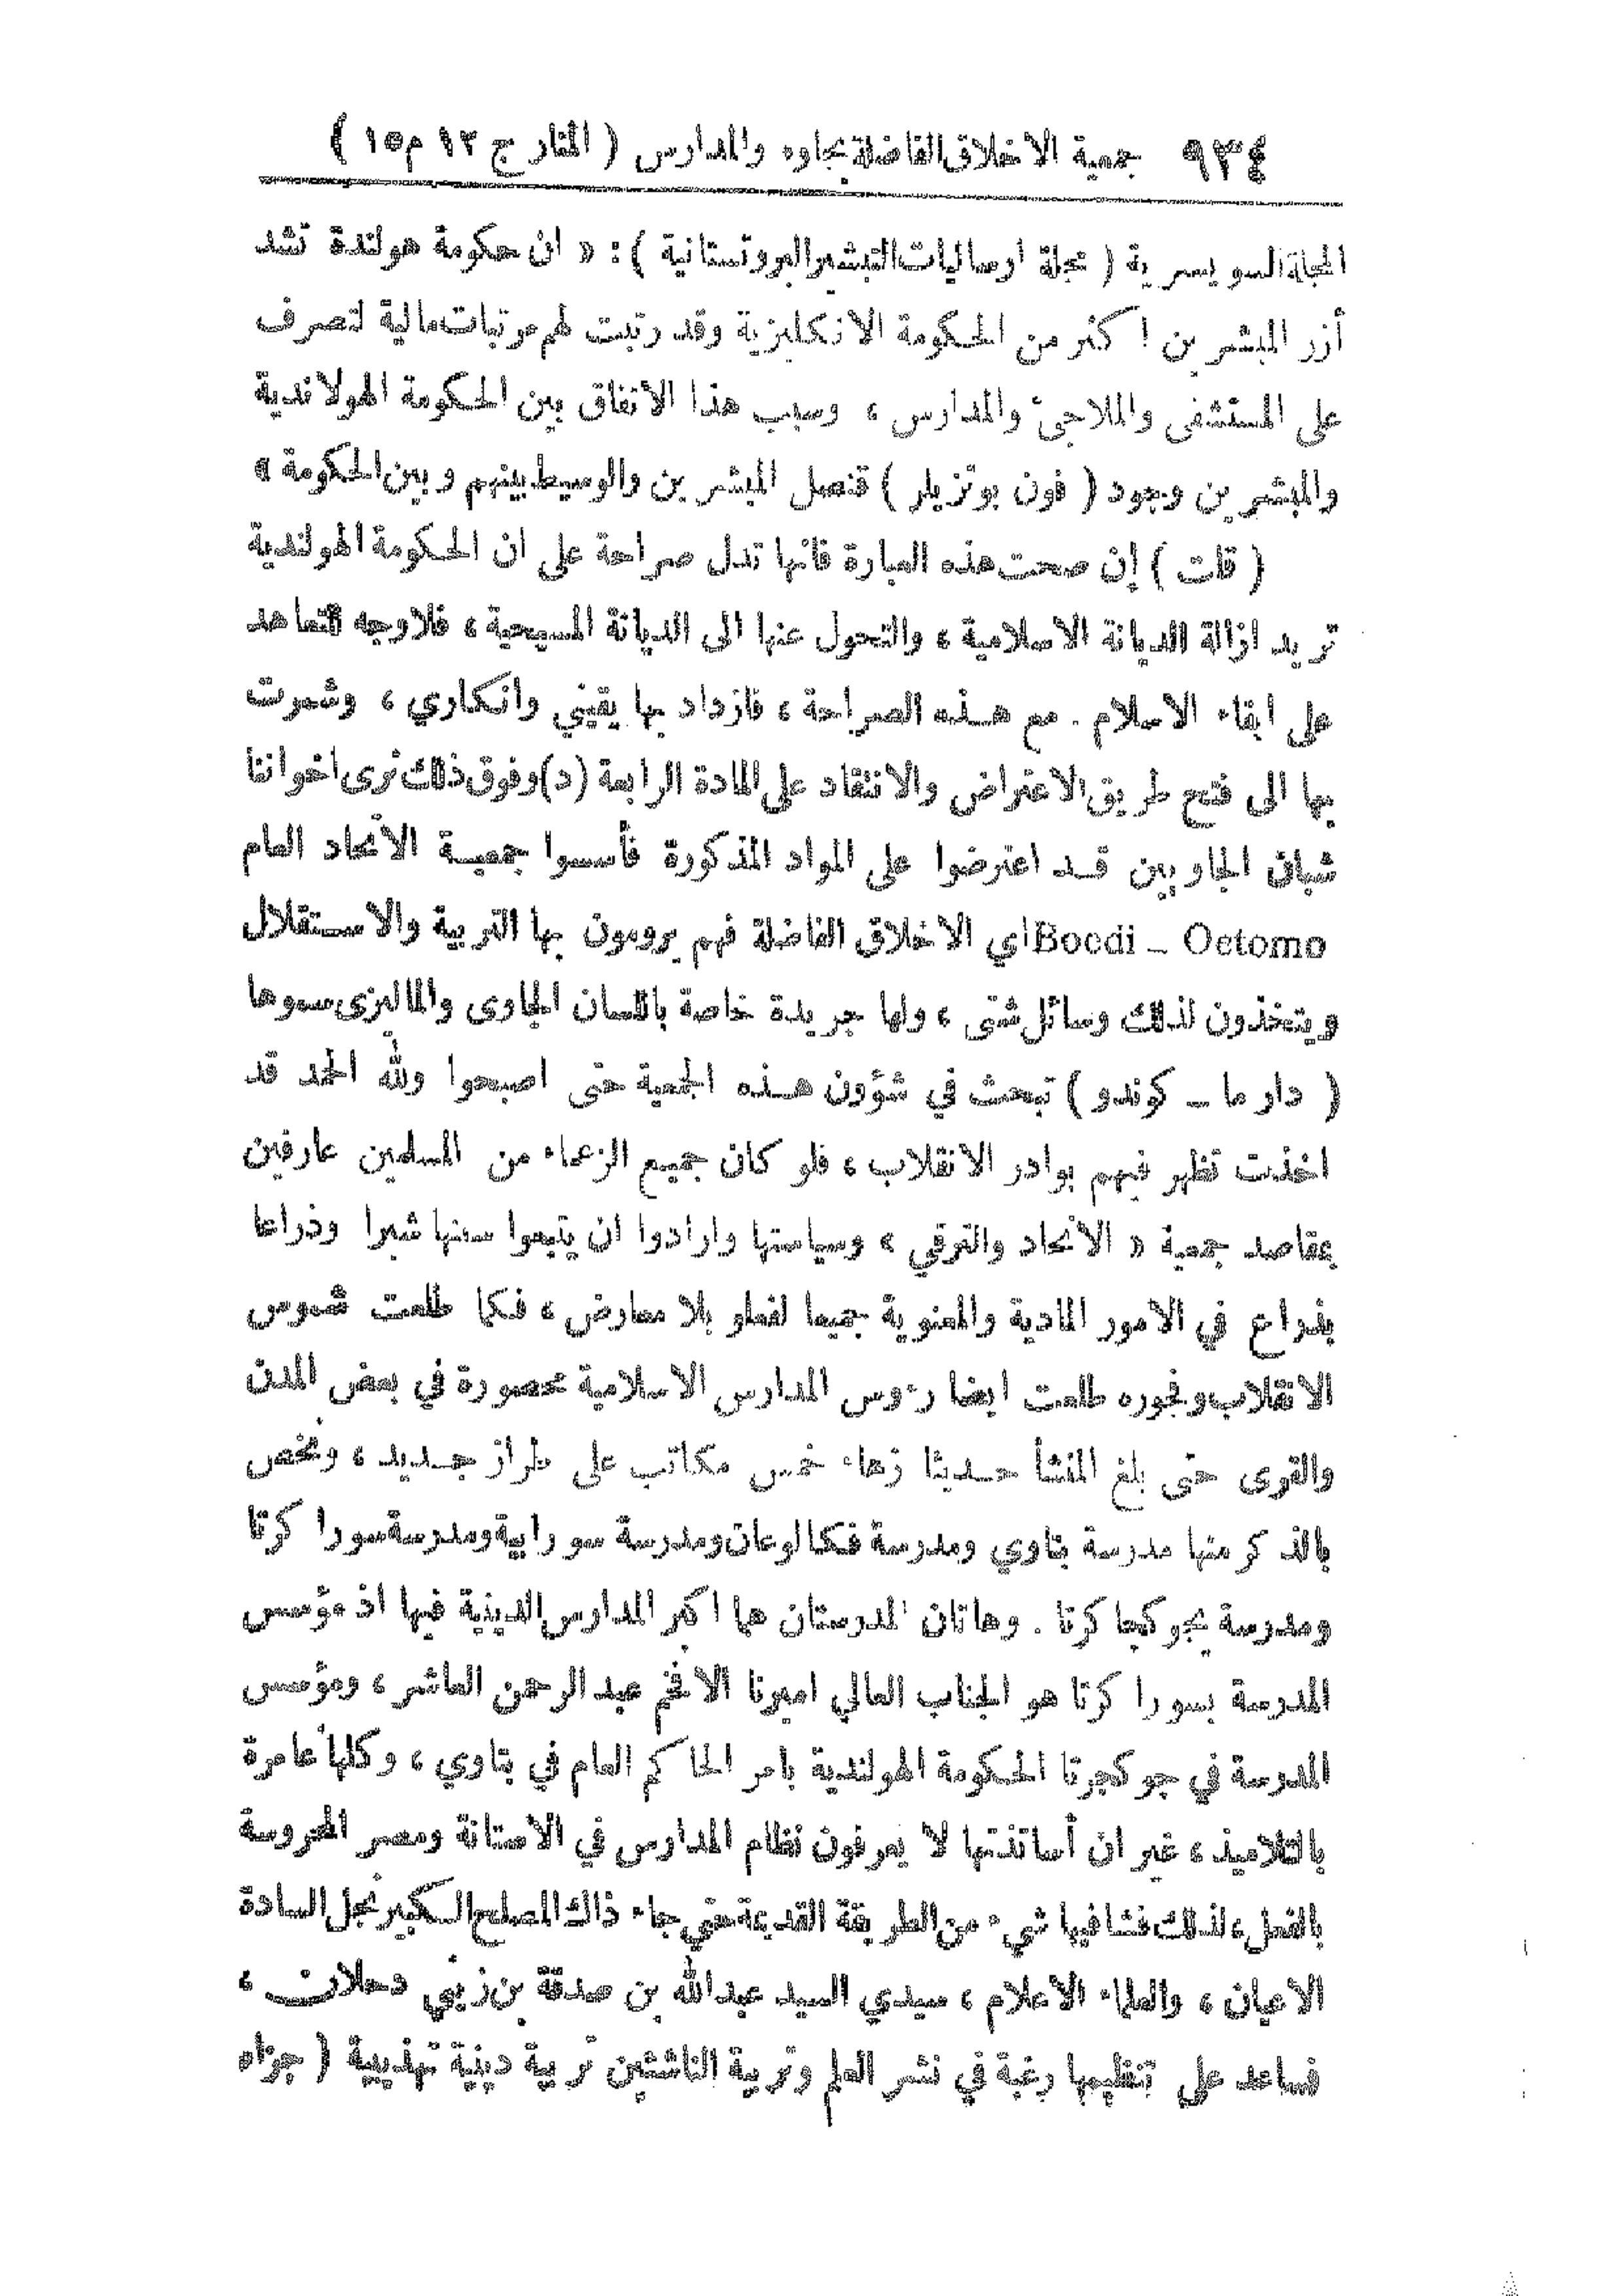 ٩٣٤ جمعية الاخلاق الفاضلة بجاوه والمدارس ( المنار ج ١٢ م ١٥ )
المجلة السويسرية ( مجلة ارساليات التبشير البروتستانية ) : « ان حكومة هولندة تشد
أزر المبشرين اكثر من الحكومة الانكليزية وقد رتبت لهم مرتبات مالية لتصرف
على المستشفى والملاجئ والمدارس ، وسبب هذا الاتفاق بين الحكومة الهولاندية
والمبشرين وجود ( فون بوتزيلر ) قنصل المبشرين والوسيط بينهم وبين الحكومة »
( قلت ) إن صحت هذه العبارة فانها تدل صراحة على ان الحكومة الهولندية
تريد ازالة الديانة الاسلامية ، والتحول عنها الى الديانة المسيحية ، فلا وجه للتعاهد
على ابقاء الاسلام . مع هذه الصراحة ، فازداد بها يقيني وانكاري ، وشمرت
بها الى فتح طريق الاعتراض والانتقاد على المادة الرابعة (د) وفوق ذلك نرى اخواننا
شبان الجاويين قد اعترضوا على المواد المذكورة فأسسوا جمعية الاتحاد العام
Boedi – Oetomo اي الاخلاق الفاضلة فهم يرومون بها التربية والاستقلال
ويتخذون لذلك وسائل شتى ، ولها جريدة خاصة باللسان الجاوى والماليزى سموها
( دار ما – كوندو ) تبحث في شؤون هذه الجمعية حتى اصبحوا ولله الحمد قد
اخذت تظهر فيهم بوادر الانقلاب ، فلو كان جميع الزعماء من المسلمين عارفين
بمقاصد جمعية « الاتحاد والترقي » وسياستها وارادوا ان يتبعوا سننها شبرا وذراعا
بذراع في الامور المادية والمعنوية جميعا لفعلو بلا معارض ، فكما طلعت شموس
الانقلاب وفجوره طلعت ايضا رءوس المدارس الاسلامية محصورة في بعض المدن
والقرى حتى بلغ المنشأ حديثا زهاء خمس مكاتب على طراز جديد ، ونخص
بالذكر منها مدرسة بتاوي ومدرسة فكالوعان ومدرسة سورابية ومدرسة سورا كرتا
ومدرسة بجو كجا كرتا . وهاتان المدرستان هما اكبر المدارس الدينية فيها اذ مؤسس
المدرسة بسورا كرتا هو الجناب العالي اميرنا الافخم عبد الرحمن العاشر ، ومؤسس
المدرسة في جو كجرتا الحكومة الهولندية بامر الحاكم العام في بتاوي ، وكلها عامرة
بالتلاميذ ، غير ان أساتذتها لا يعرفون نظام المدارس في الاستانة ومصر المحروسة
بالفعل ، لذلك فشا فيها شيء من الطريقة القديمة حتى جاء ذاك المصلح الكبير نجل السادة
الاعيان ، والعلماء الاعلام ، سيدي السيد عبدالله بن صدقة بن زيني دحلان ،
فساعد على تنظيمها رغبة في نشر العلم وتربية الناشئين تربية دينية تهذيبية ( جزاه